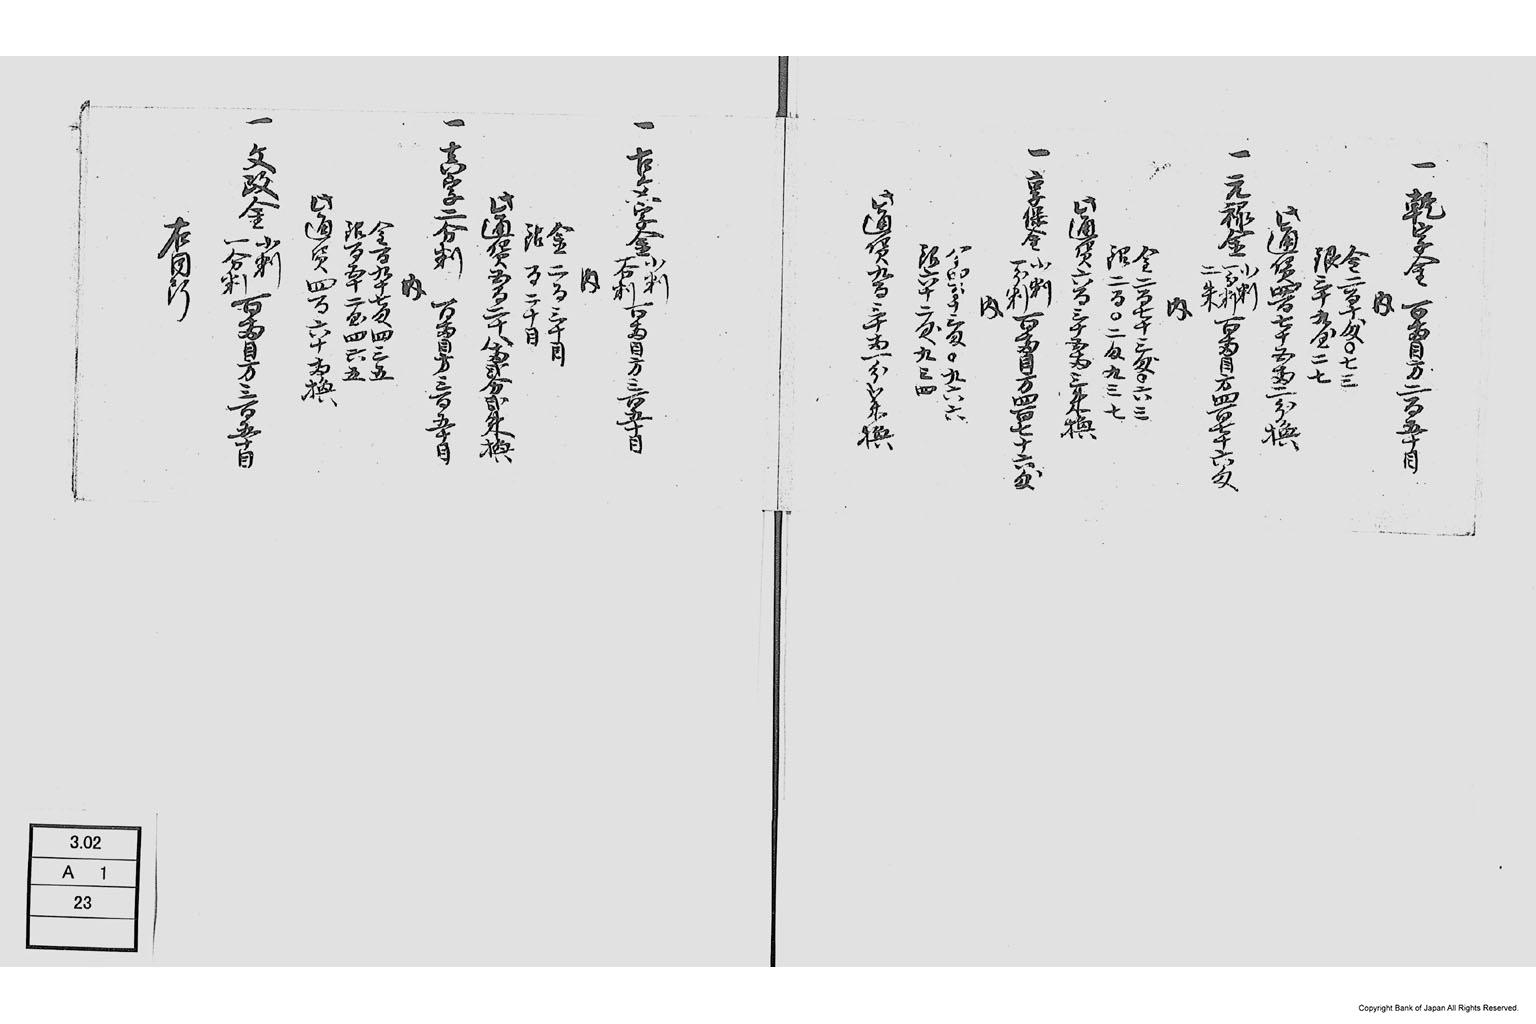 一 乾字金 百両目方二百五十目
内
金二百十匁〇七三
銀三十九匁二七
此通貨四百七十五両二分換
一 元禄金 小判 一分判 二朱 百両目方四百七十六匁
内
金二百七十三匁〇六三
銀二百〇二匁九三七
此通貨六百三十両三朱換
一 享保金 小判 一分判 百両目方四百七十六匁
内
銀六十二匁九三四
此通貨九百三十両一分
一 古文字金 小判 一分判 百両目方三百五十目
内
金二百三十目
銀百二十目
此通貨五百二十八両弐分弐朱換
一 真字二分判 百両目方三百五十目
内
金百九十七匁四三五
銀百五十二匁四六五
此通貨四百六十両換
一 文政金 小判 一分判 百両目方三百五十目
右同断
3.02
A 1
23
Copyright Bank of Japan All Rights Reserved.